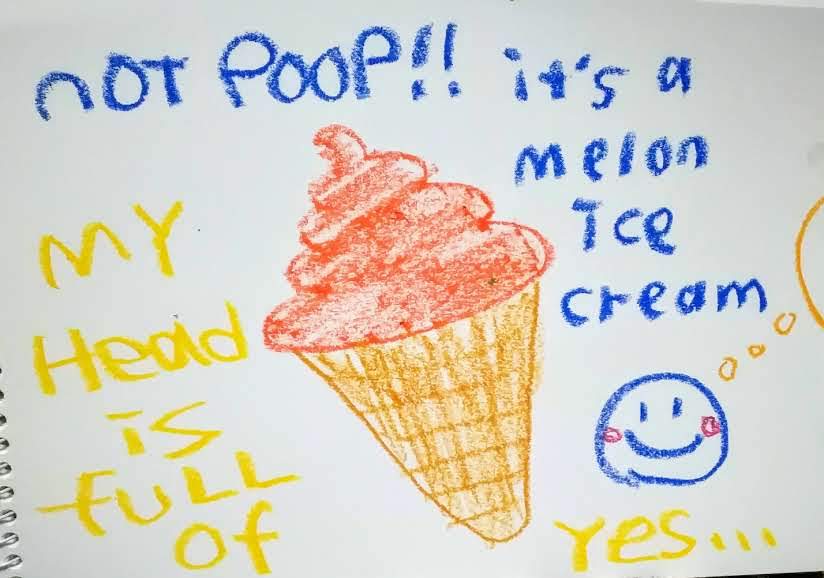 not POOP!! it's a
melon
Ice
cream
MY
Head
is
fuLL
of
Yes...